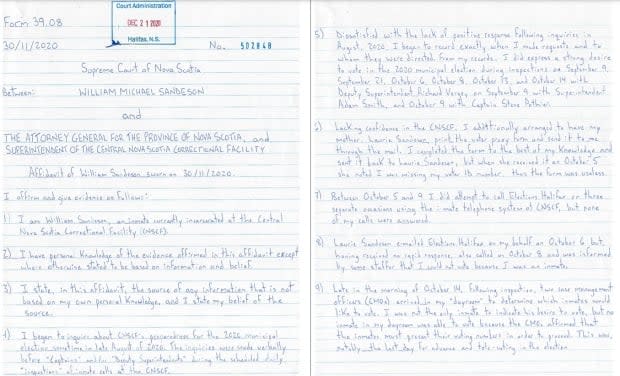 Form 39.08
Court Administration
DEC 21 2020
Halifax, N.S.
30/11/2020
No. 502848
Supreme Court of Nova Scotia
Between:
WILLIAM MICHAEL SANDESON
and
THE ATTORNEY GENERAL FOR THE PROVINCE OF NOVA SCOTIA, and
SUPERINTENDENT OF THE CENTRAL NOVA SCOTIA CORRECTIONAL FACILITY
Affidavit of William Sandeson sworn on 30/11/2020.
I affirm and give evidence as follows:
1) I am William Sandeson, an inmate currently incarcerated at the Central
Nova Scotia Correctional Facility (CNSCF).
2) I have personal knowledge of the evidence affirmed in this affidavit except
where otherwise stated to be based on information and belief.
3) I state, in this affidavit, the source of any information that is not
based on my own personal knowledge, and I state my belief of the
source.
4) I began to inquire about CNSCF's preparedness for the 2020 municipal
election sometime in late August of 2020. The inquiries were made verbally
before "Captains" and/or "Deputy Superintendents" during the scheduled daily
"inspections" of inmate cells at the CNSCF.
5) Dissatisfied with the lack of positive response following inquiries in
August, 2020, I began to record exactly when I made requests and to
whom they were directed. From my records, I did express a strong desire
to vote in the 2020 municipal election during inspections on September 9,
September 21, October 6, October 8, October 13, and October 14 with
Deputy Superintendent Richard Verge, on September with Superintendent
Adam Smith, and October 9 with Captain Steve
6) Lacking confidence in the CNSCF, I additionally arranged to have my
mother, Laurie Sandeson, print the voter proxy form and send it to me
through the mail. I completed the form to the best of my knowledge and
sent it back to Laurie Sandeson, but when she received it on October 5
she noted I was missing my voter ID number, thus the form was useless.
7) Between October 5 and 9 I did attempt to call Elections Halifax on three
separate occasions using the inmate telephone system of CNSCF, but none
of my calls were answered.
8) Laurie Sandeson emailed Elections Halifax on my behalf on October 6 but,
having received no rapid response, also called on October 8 and was informed
by some staffer that I could not vote because I was an inmate.
9) Late in the morning of October 14, following inspection, two case management
officers (CMOs) arrived in my "dayroom" to determine which inmates would
like to vote. I was not the only inmate to indicate his desire to vote, but no
inmate in my dayroom was able to vote because the CMOs affirmed that
the inmates must present their voting numbers in order to proceed. This was,
notably, the last day for advance and tele-voting in the election.